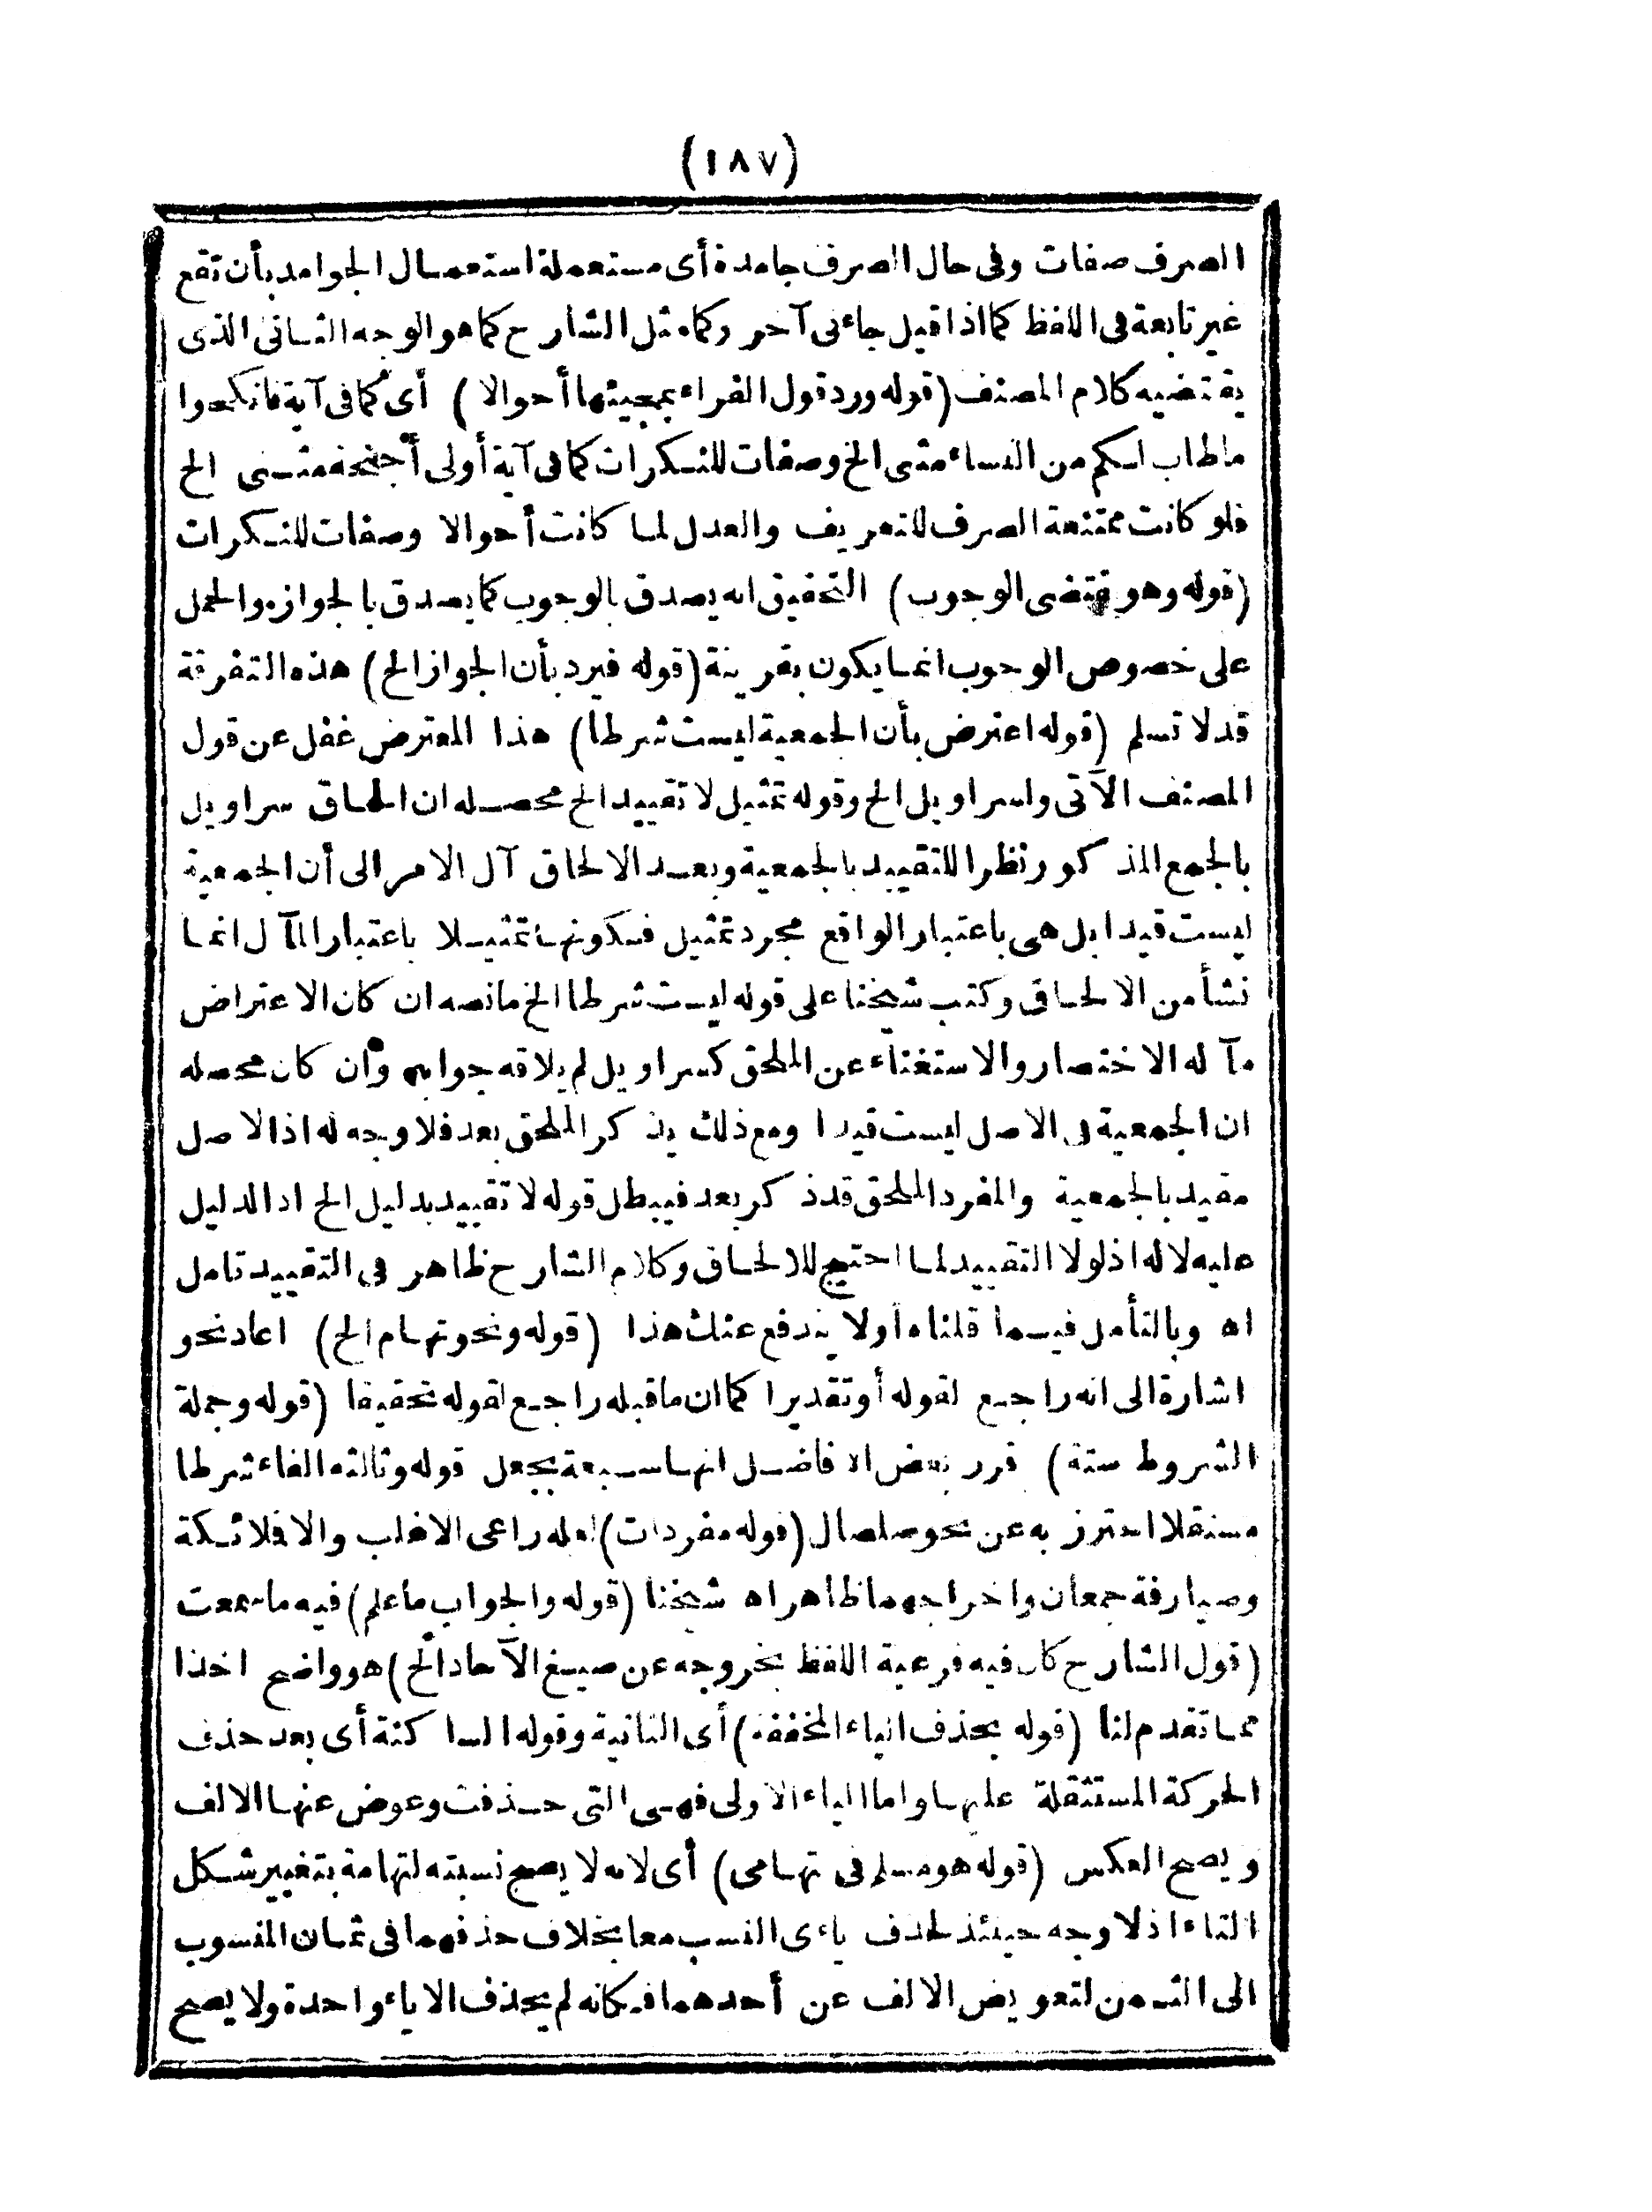 (١٨٧)
الصرف صفات وفى حال الصرف جامدة أى مستعملة استعمال الجوامد بأن تقع
غير تابعة فى اللفظ كما اذا قيل جاءنى آخر وكما مثل الشارح كما هو الوجه الثانى الذى
يقتضيه كلام المصنف (قوله ورد قول الفراء بمجيئها أحوالا) أى كما فى آية فانكحوا
ما طاب لكم من النساء مثنى الخ وصفات للنكرات كما فى آية أولى أجنحة مثنى الخ
فلو كانت ممتنعة الصرف للتعريف والعدل لما كانت أحوالا وصفات للنكرات
(قوله وهو مقتضى الوجوب) التحقيق انه يصدق بالوجوب كما يصدق بالجواز والحمل
على خصوص الوجوب انما يكون بقرينة (قوله فيرد بأن الجواز الخ) هذه التفرقة
قد لا تسلم (قوله اعترض بأن الجمعية ليست شرطا) هذا المعترض غفل عن قول
المصنف الآتى ولسراويل الخ وقوله تمثيل لا تقييد الخ محصله ان الحاق سراويل
بالجمع المذكور نظرا للتقييد بالجمعية وبعد الالحاق آل الامر الى أن الجمعية
ليست قيدا بل هى باعتبار الواقع مجرد تمثيل فكونها تمثيلا باعتبار المآل انما
نشأ من الالحاق وكتب شيخنا على قوله ليست شرطا الخ مانصه ان كان الاعتراض
مآ له الاختصار والاستغناء عن الملحق كسراويل لم يلاقه جوابه وان كان محصله
ان الجمعية فى الاصل ليست قيدا ومع ذلك يذكر الملحق بعد فلا وجه له اذ الاصل
مقيد بالجمعية والمفرد الملحق قد ذكر بعد فيبطل قوله لا تقييد بدليل الخ اذ الدليل
عليه لا له اذ لولا التقييد لما احتيج للالحاق وكلام الشارح ظاهر فى التقييد تامل
اه وبالتأمل فيما قلناه أولا يندفع عنك هذا (قوله ونحو تهام الخ) اعاد نحو
اشارة الى انه راجع لقوله أو تقديرا كما ان ما قبله راجع لقوله تحقيقا (قوله وجملة
الشروط ستة) قرر بعض الافاضل انها سبعة بجعل قوله وثالثه الفاء شرطا
مستقلا احترز به عن نحو صلصال (قوله مفردات) لعله راعى الاغلب والا فلائكة
وصيارفة جمعان واخراجهما ظاهر اه شيخنا (قوله والجواب ما علم) فيه ما سمعت
(قول الشارح كان فيه فرعية اللفظ بخروجه عن صيغ الآحاد الخ) هو واضح اخذا
مما تقدم لنا (قوله بحذف الياء المخففة) أى الثانية وقوله الساكنة أى بعد حذف
الحركة المستثقلة عليها واما الياء الاولى فهى التى حذفت وعوض عنها الالف
ويصح العكس (قوله هو مسلم فى تهامى) أى لانه لا يصح نسبته لتهامة بتغيير شكل
التاء اذ لا وجه حينئذ لحذف ياءى النسب معا بخلاف حذفهما فى ثمان المنسوب
الى الثمن لتعويض الالف عن أحدهما فكانه لم يحذف الا ياء واحدة ولا يصح